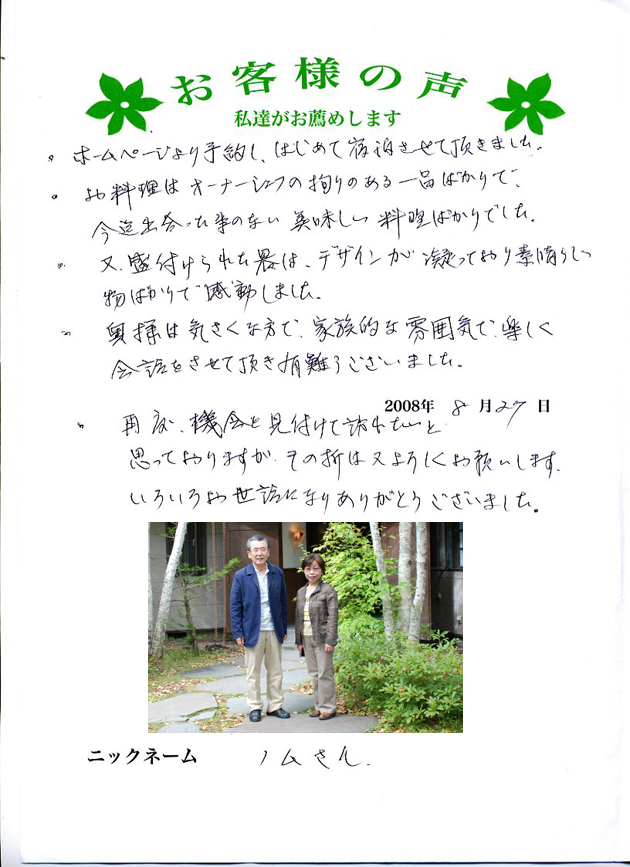 お客様の声
私達がお薦めします
。ホームページより予約し、はじめて宿泊させて頂きました。
。お料理はオーナーシェフの拘りのある一品ばかりで、
今迄出会った事のない美味しい料理ばかりでした。
。又、盛付けられた器は、デザインが凝っており素晴らしい
物ばかりで感動しました。
。奥様は気さくな方で、家族的な雰囲気で、楽しく
会話をさせて頂き有難うございました。
2008年 8 月 27 日
。再度、機会を見付けて訪れたいと
思っておりますが、その折は又よろしくお願いします。
いろいろお世話になりありがとうございました。
ニックネーム ノムさん.